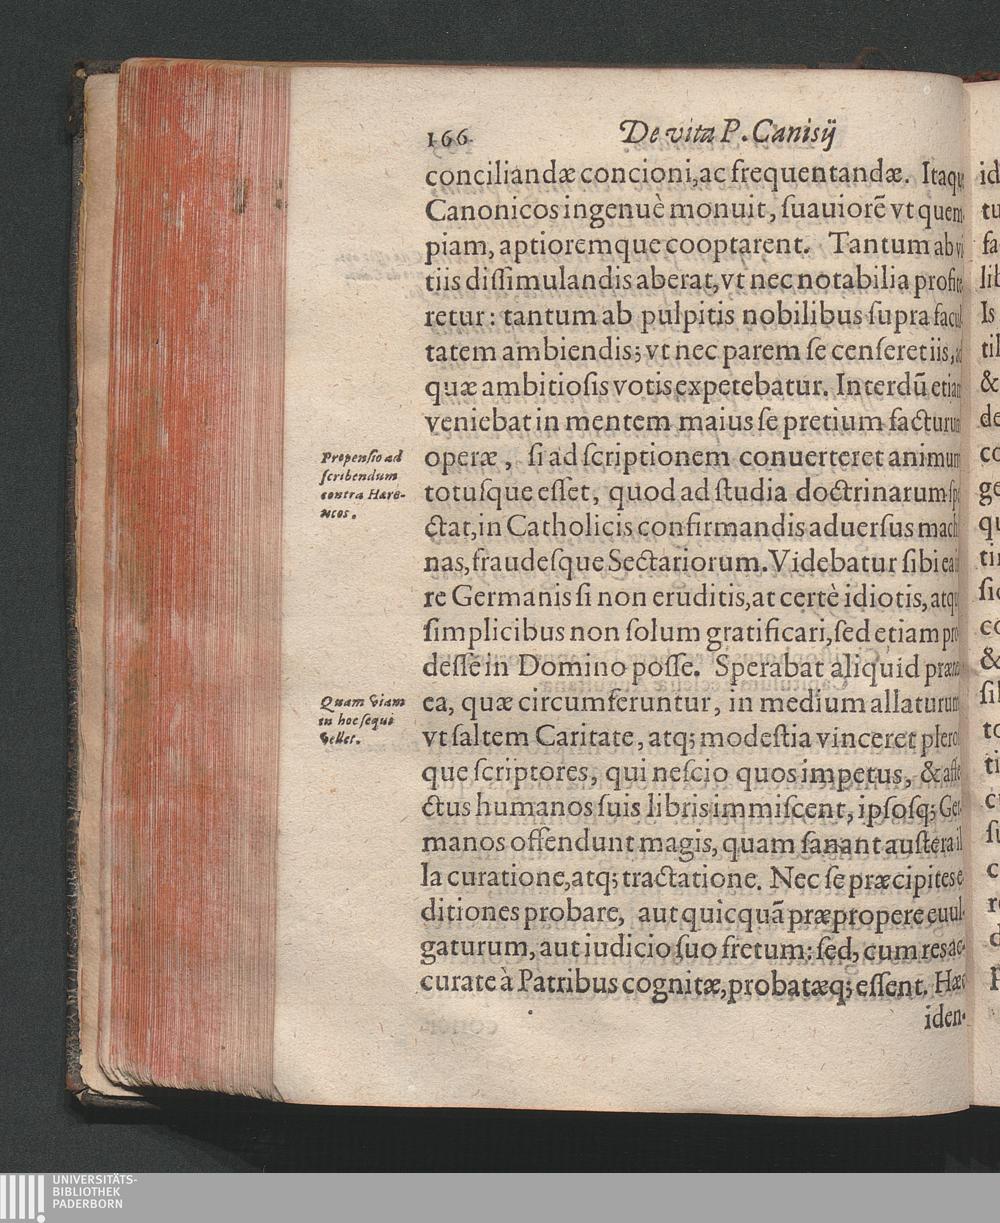 166 De vita P. Canisij
conciliandæ concioni, ac frequentandæ. Itaq́ue
Canonicos ingenuè monuit, ſuauiorē vt quem-
piam, aptioremque cooptarent. Tantum ab vi
tiis diſſimulandis aberat, vt nec notabilia profite
retur: tantum ab pulpitis nobilibus ſupra facul
tatem ambiendis; vt nec parem ſe cenſeret iis, ad
quæ ambitioſis votis expetebatur. Interdū etiam
veniebat in mentem maius ſe pretium facturum
Propenſio ad
ſcribendum
contra Hære-
ticos.
operæ, ſi ad ſcriptionem conuerteret animum
totuſque eſſet, quod ad ſtudia doctrinarum ſpe
ctat, in Catholicis confirmandis aduerſus machi
nas, fraudeſque Sectariorum. Videbatur ſibi ea in
re Germanis ſi non eruditis, at certè idiotis, atque
ſimplicibus non ſolum gratificari, ſed etiam pro
deſſe in Domino poſſe. Sperabat aliquid præter
Quam viam
in hoc ſequi
vellet.
ea, quæ circumferuntur, in medium allaturum
vt ſaltem Caritate, atq; modeſtia vinceret plero
que ſcriptores, qui neſcio quos impetus, & affe
ctus humanos ſuis libris immiſcent, ipſoſq; Ger-
manos offendunt magis, quam ſanant auſtera il
la curatione, atq; tractatione. Nec ſe præcipites e
ditiones probare, aut quicquā præpropere euul-
gaturum, aut iudicio ſuo fretum: ſed, cum res ac-
curate à Patribus cognitæ, probatæq; eſſent. Hæc
iden-
id
tu
fa
lib
Is
til
&
de
co
ge
qu
tin
ſic
co
&
ſil
to
ti
ſu
c
re
d
p
UNIVERSITÄTS-
BIBLIOTHEK
PADERBORN